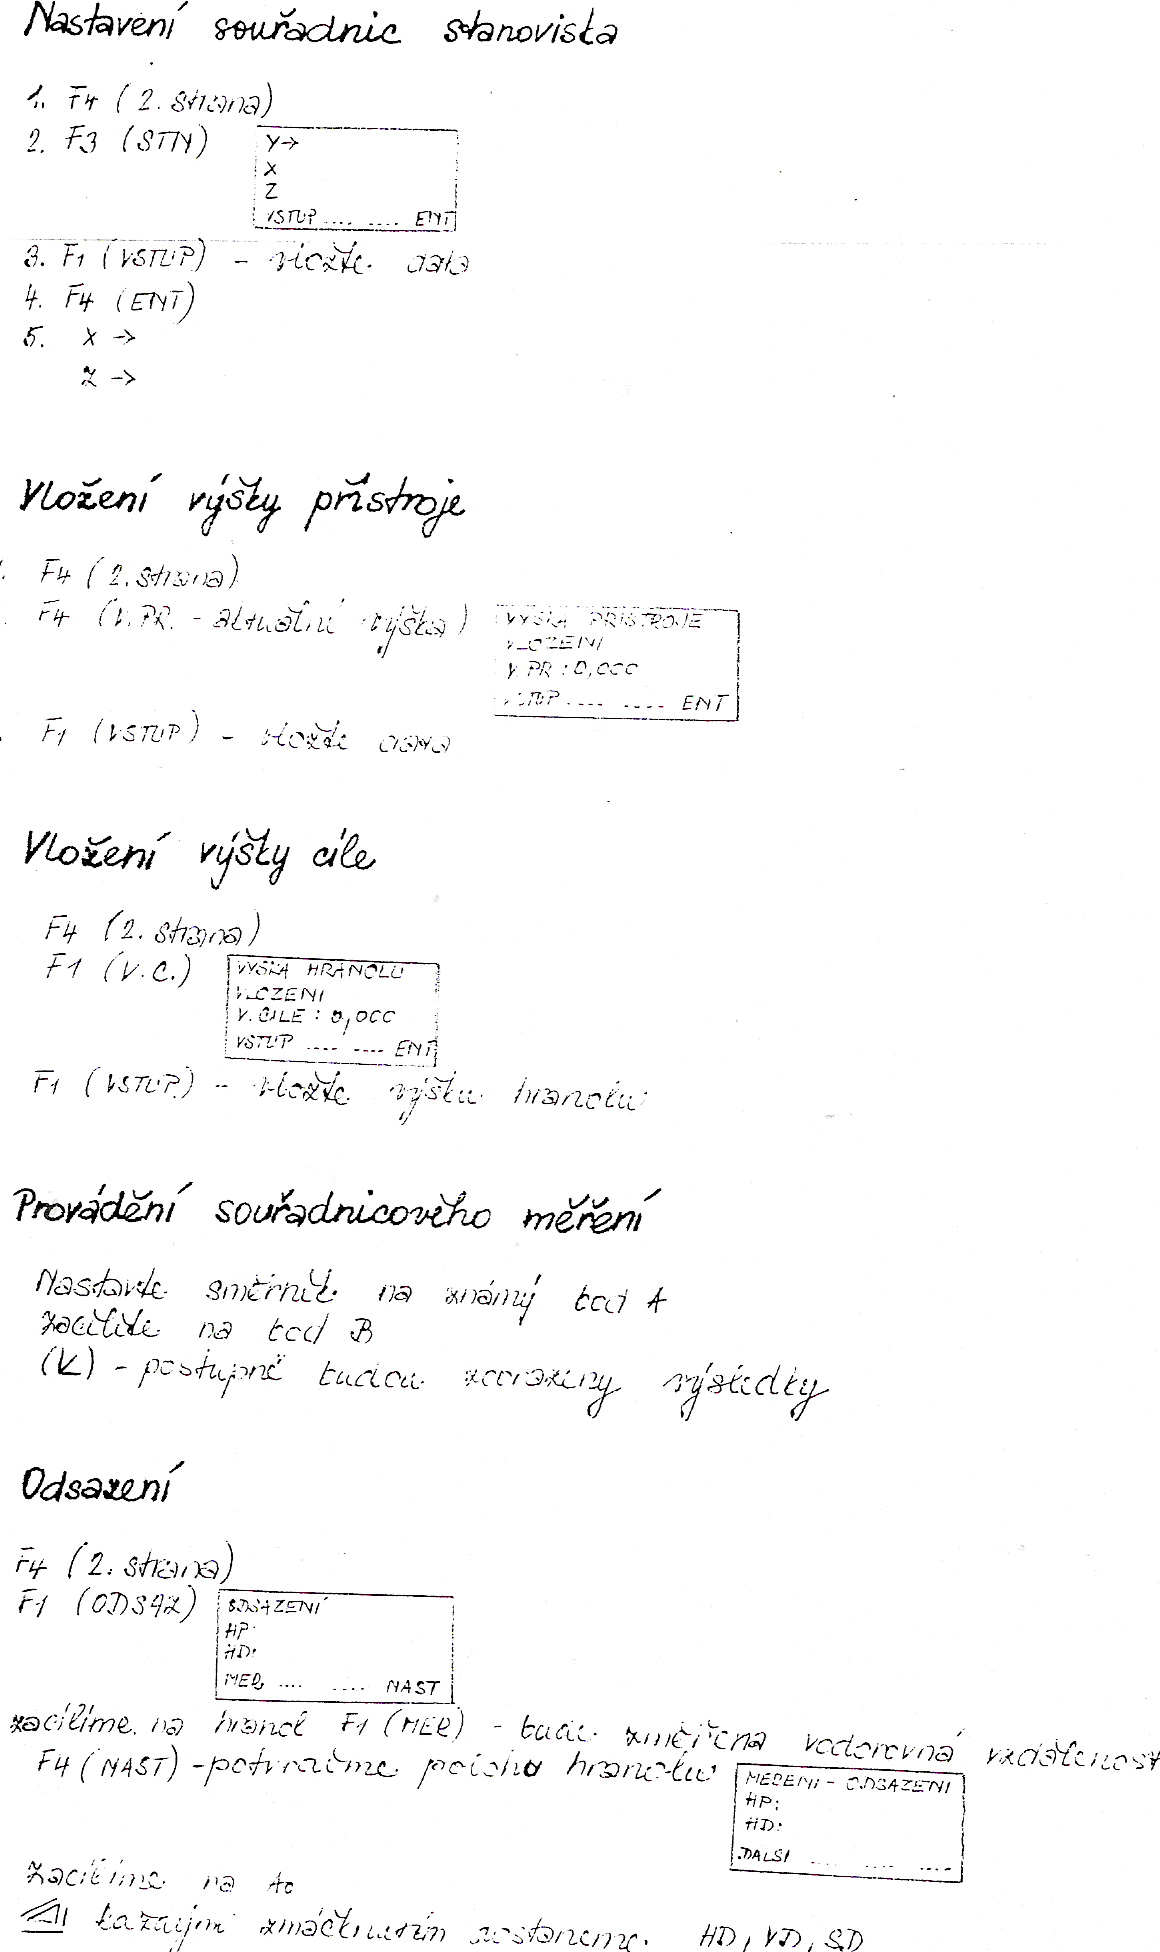 Nastavení souřadnic stanoviska
1. F4 (2. strana)
2. F3 (STN)
Y→
X
Z
VSTUP .... .... ENT
3. F1 (VSTUP) - vložte data
4. F4 (ENT)
5. X →
Z →
Vložení výšky přístroje
F4 (2. strana)
F4 (V.PR. - aktuální výška)
VYSKA PRISTROJE
VLOZENI
V.PR : 0,000
VSTUP .... .... ENT
F1 (VSTUP) - vložte data
Vložení výšky cíle
F4 (2. strana)
F1 (V.C.)
VYSKA HRANOLU
VLOZENI
V. CILE : 0,000
VSTUP .... .... ENT
F1 (VSTUP) - vložte výšku hranolu
Provádění souřadnicového měření
Nastavte směrník na známý bod A
zacilite na bod B
(K) - postupně budou zobrazeny výsledky
Odsazení
F4 (2. strana)
F1 (ODSAZ)
ODSAZENÍ
HP:
HD:
MER .... .... NAST
zacílíme na hranol F1 (MER) - bude změřena vodorovná vzdálenost
F4 (NAST) - potvrdíme polohu hranolu
MERENI - ODSAZENI
HP:
HD:
DALSI .... .... ....
Zacílíme na A0
každým zmáčknutím dostaneme HD, VD, SD